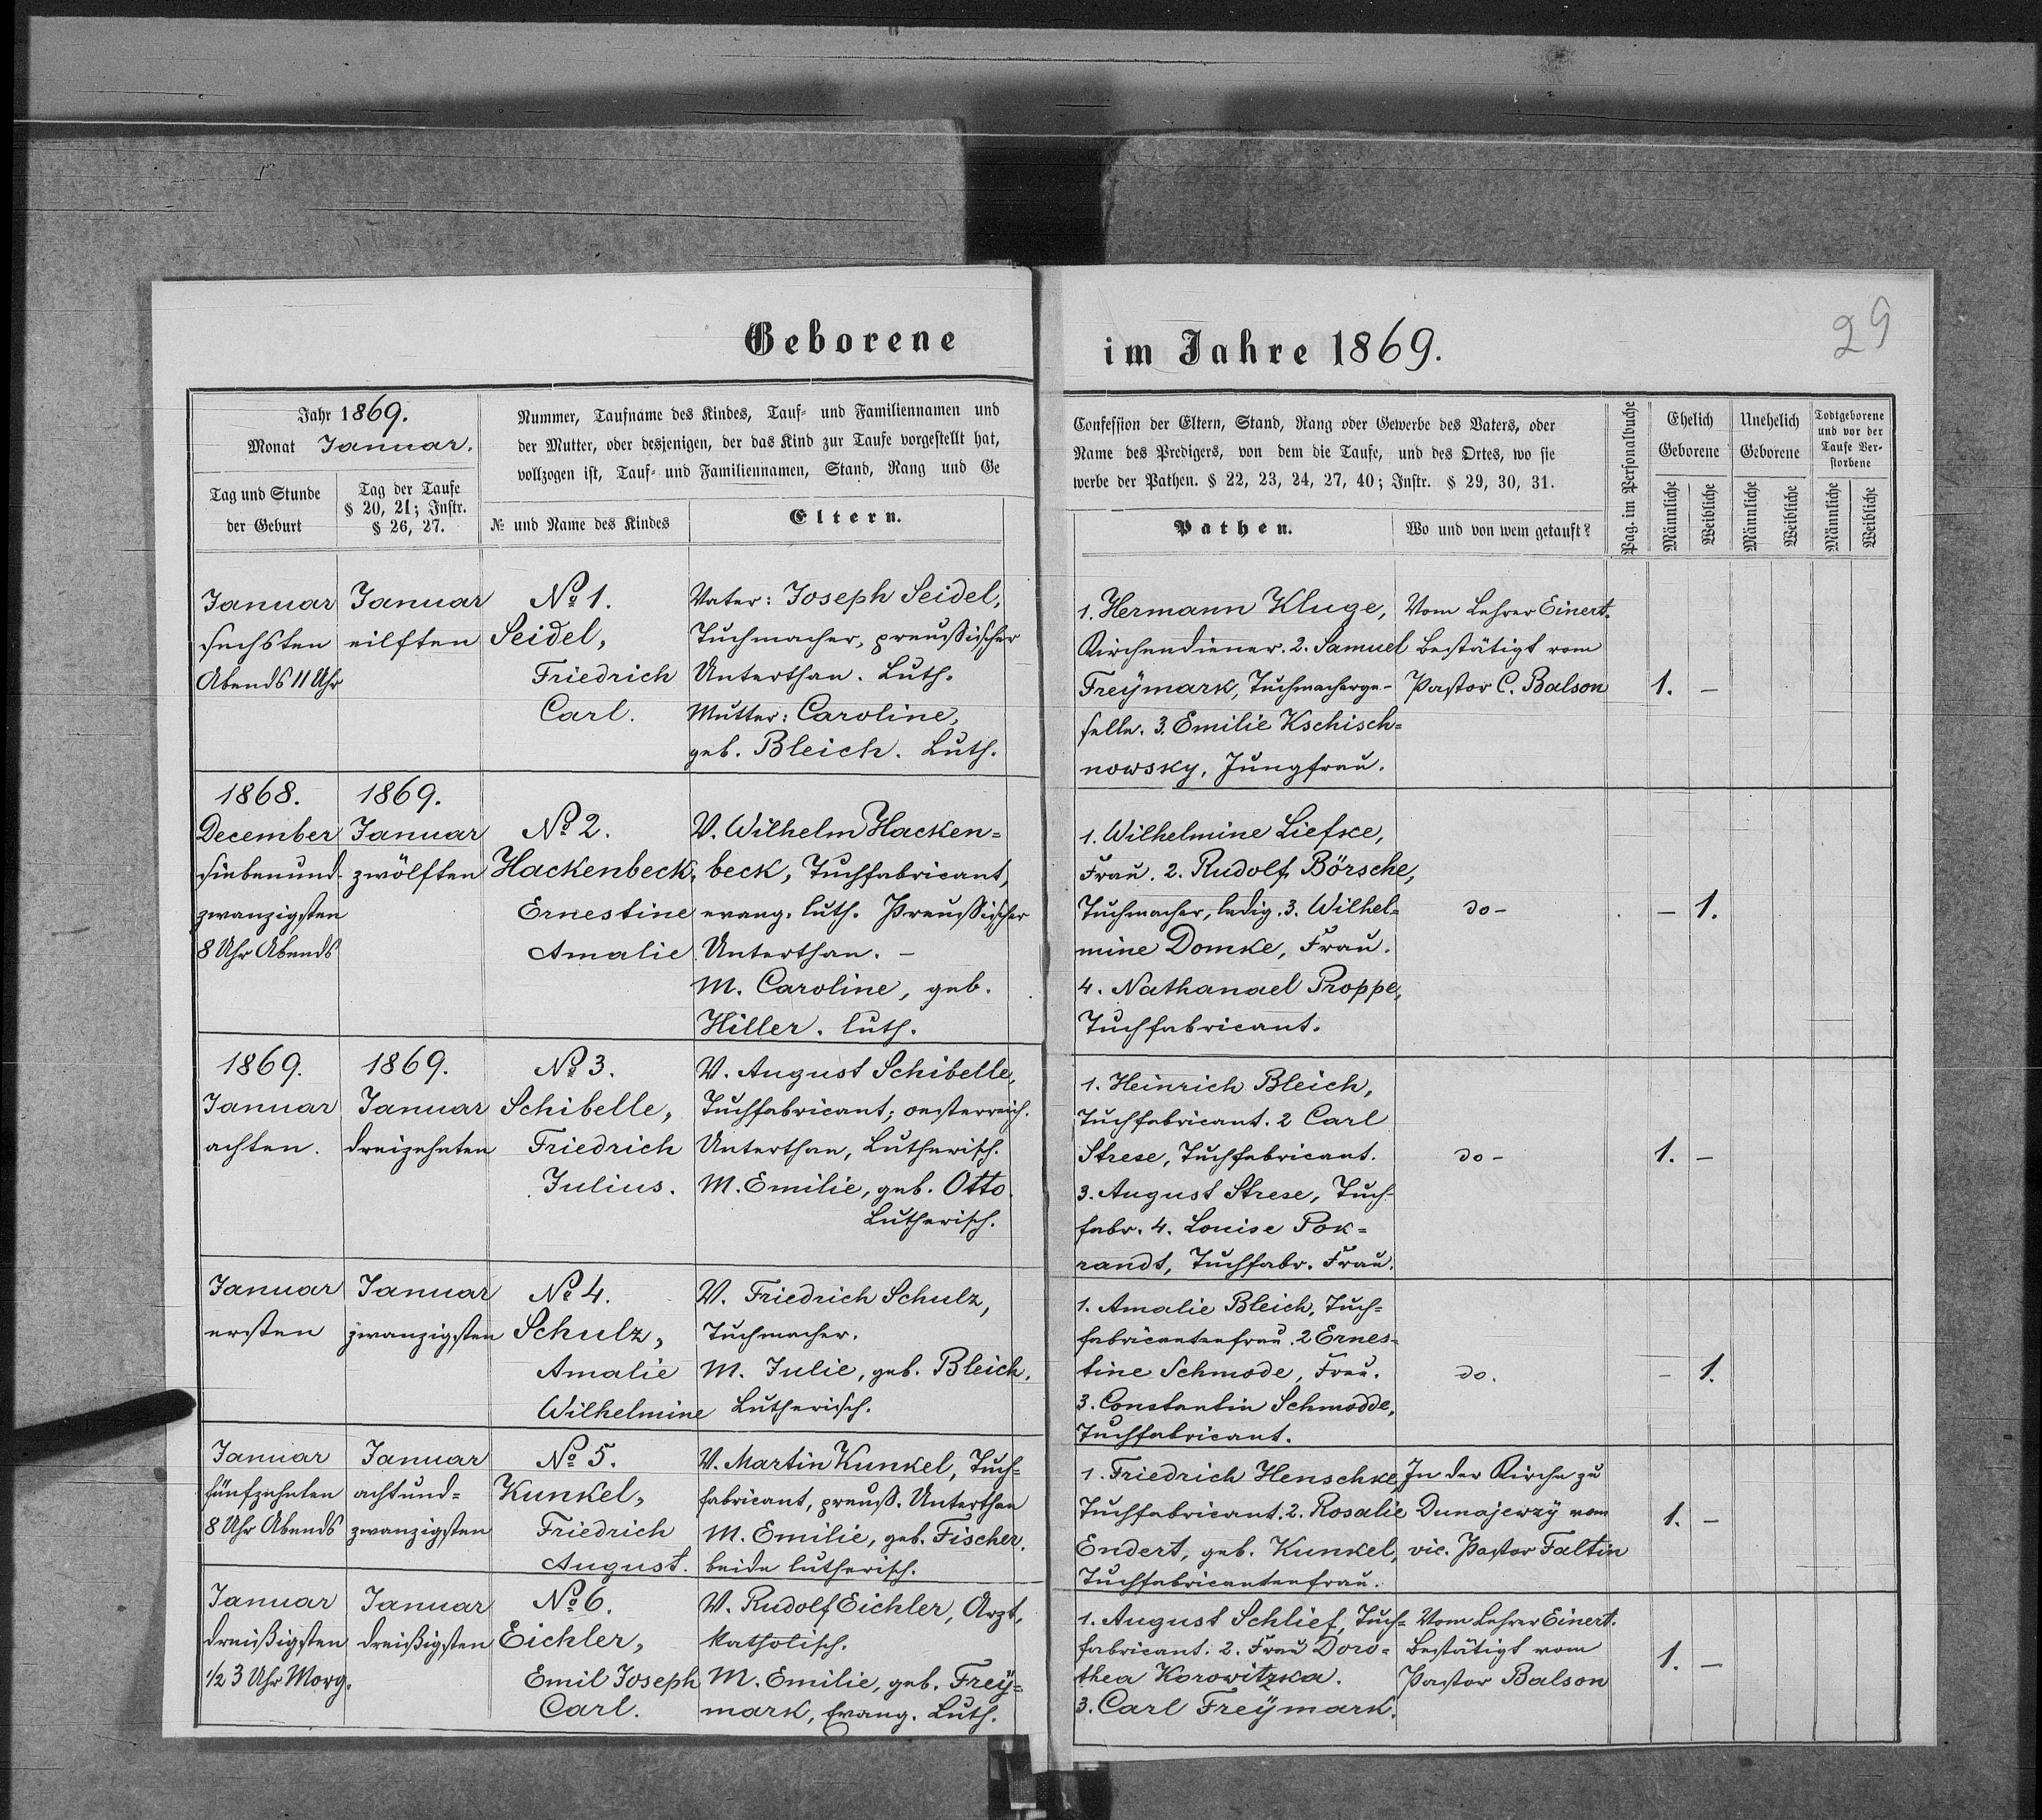 Geborene
im Jahre 1869.
29
Jahr 1869.
Monat Januar.
Tag und Stunde
der Geburt
Tag der Taufe
§ 20, 21; Instr.
§ 26, 27.
Nummer, Taufname des Kindes, Tauf- und Familiennamen und
der Mutter, oder desjenigen, der das Kind zur Taufe vorgestellt hat,
vollzogen ist, Tauf- und Familiennamen, Stand, Rang und Ge
№ und Name des Kindes
Eltern.
Confession der Eltern, Stand, Rang oder Gewerbe des Vaters, oder
Name des Predigers, von dem die Taufe, und des Ortes, wo sie
werbe der Pathen. § 22, 23, 24, 27, 40; Instr. § 29, 30, 31.
Pathen.
Wo und von wem getauft?
Pag. im Personalbuche
Ehelich
Geborene
Männliche
Weibliche
Unehelich
Geborene
Männliche
Weibliche
Todtgeborene
und vor der
Taufe Ver-
storbene
Männliche
Weibliche
Januar
sechsten
Abends 11 Uhr
Januar
eilften
№ 1.
Seidel,
Friedrich
Carl.
Vater: Joseph Seidel,
Tuchmacher, preußischer
Unterthan. Luth.
Mutter: Caroline,
geb. Bleich. Luth.
1. Hermann Kluge,
Kirchendiener. 2. Samuel
Freÿmark, Tuchmacherge-
selle. 3. Emilie Kschisch=
nowsky, Jungfrau.
Vom Lehrer Einert.
Bestätigt vom
Pastor C. Balson
1. –
1868.
December
siebenund-
zwanzigsten
8 Uhr Abends
1869.
Januar
zwölften
№ 2.
Hackenbeck,
Ernestine
Amalie
V. Wilhelm Hacken=
beck, Tuchfabricant,
evang. luth. Preußischer
Unterthan. –
M. Caroline, geb.
Hiller. luth.
1. Wilhelmine Liefske,
Frau. 2. Rudolf Börsche,
Tuchmacher, ledig. 3. Wilhel=
mine Domke, Frau.
4. Nathanael Proppe,
Tuchfabricant.
do –
– 1.
1869.
Januar
achten.
1869.
Januar
dreizehnten
№ 3.
Schibelle,
Friedrich
Julius.
V. August Schibelle,
Tuchfabricant; oesterreich.
Unterthan, Lutherisch.
M. Emilie, geb. Otto.
Lutherisch.
1. Heinrich Bleich,
Tuchfabricant. 2 Carl
Strese, Tuchfabricant.
3. August Strese, Tuch-
fabr. 4. Louise Pok=
randt, Tuchfabr. Frau.
do –
1. –
Januar
ersten
Januar
zwanzigsten
№ 4.
Schulz,
Amalie
Wilhelmine
V. Friedrich Schulz,
Tuchmacher.
M. Julie, geb. Bleich.
Lutherisch.
1. Amalie Bleich, Tuch=
fabricantenfrau. 2 Ernes=
tine Schmode, Frau.
3. Constantin Schmodde,
Tuchfabricant.
do.
– 1.
Januar
fünfzehnten
8 Uhr Abends
Januar
achtund=
zwanzigsten
№ 5.
Kunkel,
Friedrich
August.
V. Martin Kunkel, Tuch=
fabricant, preuß. Unterthan
M. Emilie, geb. Fischer.
beide lutherisch.
1. Friedrich Henschke,
Tuchfabricant. 2. Rosalie
Endert, geb. Kunkel,
Tuchfabricantenfrau.
In der Kirche zu
Dunajewzÿ vom
vic. Pastor Faltin
1. –
Januar
dreißigsten
1/2 3 Uhr Morg.
Januar
dreißigsten
№ 6.
Eichler,
Emil Joseph
Carl.
V. Rudolf Eichler, Arzt,
katholisch.
M. Emilie, geb. Freÿ=
mark, Evang. Luth.
1. August Schlief, Tuch=
fabricant. 2. Frau Doro=
thea Korowitzka.
3. Carl Freÿmark.
Vom Lehrer Einert.
Bestätigt vom
Pastor Balson
1. –